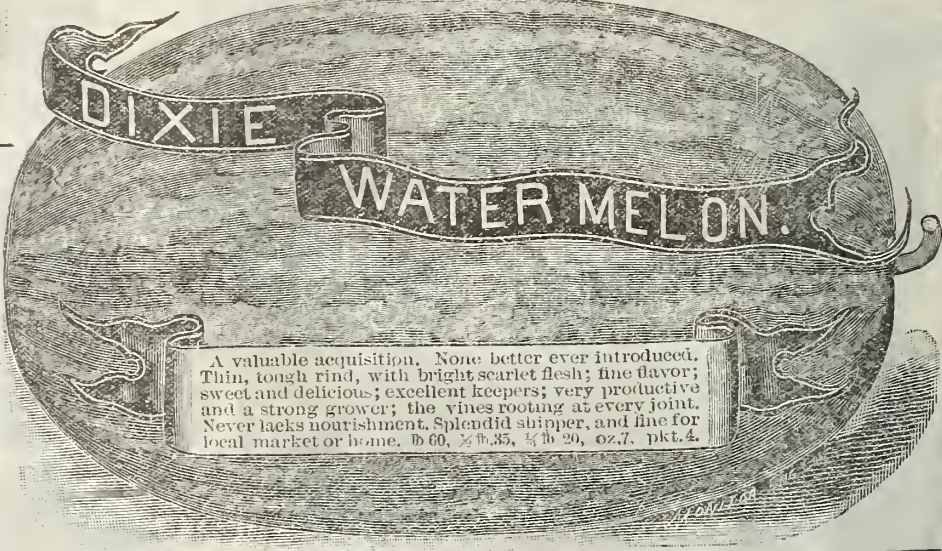 DIXIE
WATER MELON.
A valuable acquisition. None better ever introduced.
Thin, tough rind, with bright scarlet flesh; fine flavor;
sweet and delicious; excellent keepers; very productive
and a strong grower; the vines rooting at every joint.
Never lacks nourishment. Splendid shipper, and fine for
local market or home. lb 60, ½ lb.35, ¼ lb 20, oz.7, pkt.4.